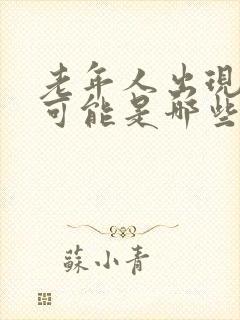 老年人出現
可能是哪些
蘇小青